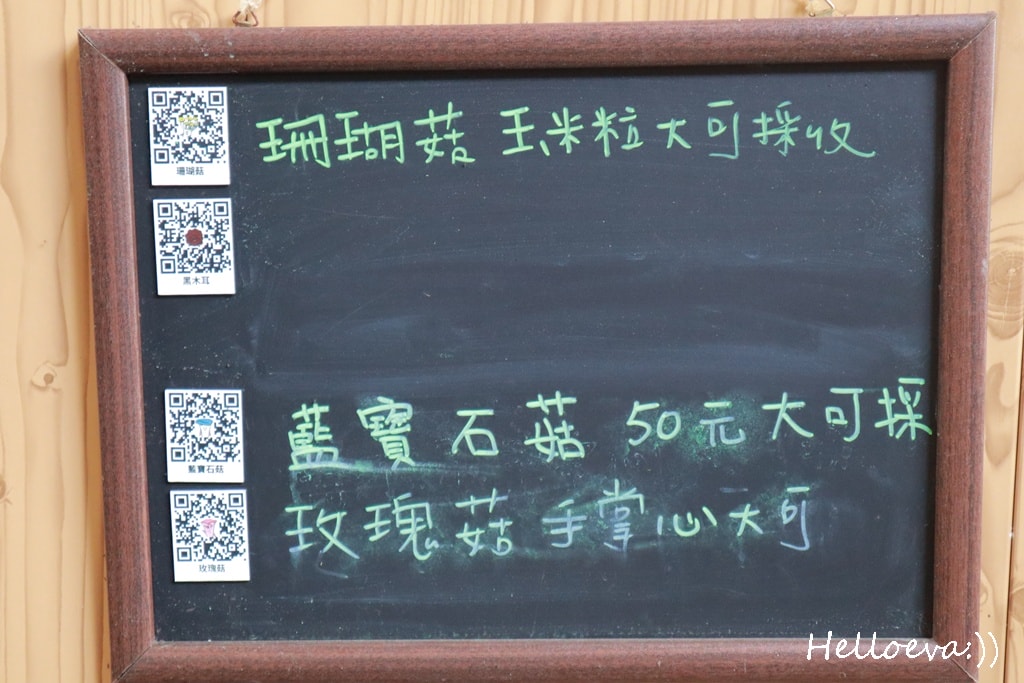 珊瑚菇 玉米粒大可採收
珊瑚菇
黑木耳
藍寶石菇 50元大可採
藍寶石菇
玫瑰菇 手掌心大可
玫瑰菇
Helloeva:))